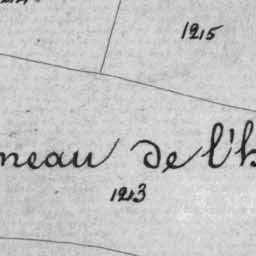 1215
meau de l'h
1213